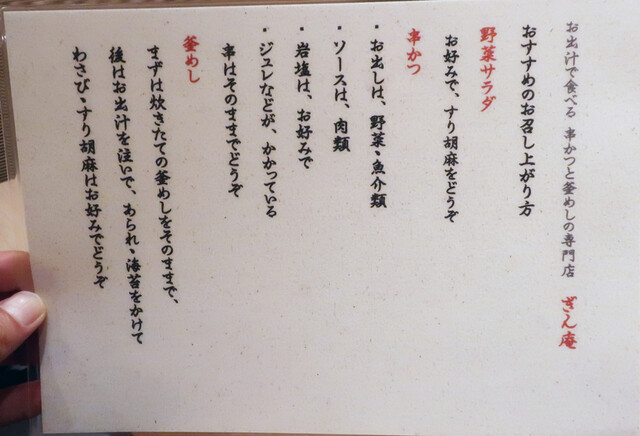 お出汁で食べる 串かつと釜めしの専門店 ぎん庵
おすすめのお召し上がり方
野菜サラダ
お好みで、すり胡麻をどうぞ
串かつ
・お出しは、野菜、魚介類
・ソースは、肉類
・岩塩は、お好みで
・ジュレなどが、かかっている
串はそのままでどうぞ
釜めし
まずは炊きたての釜めしをそのままで、
後はお出汁を注いで、あられ、海苔をかけて
わさび、すり胡麻はお好みでどうぞ